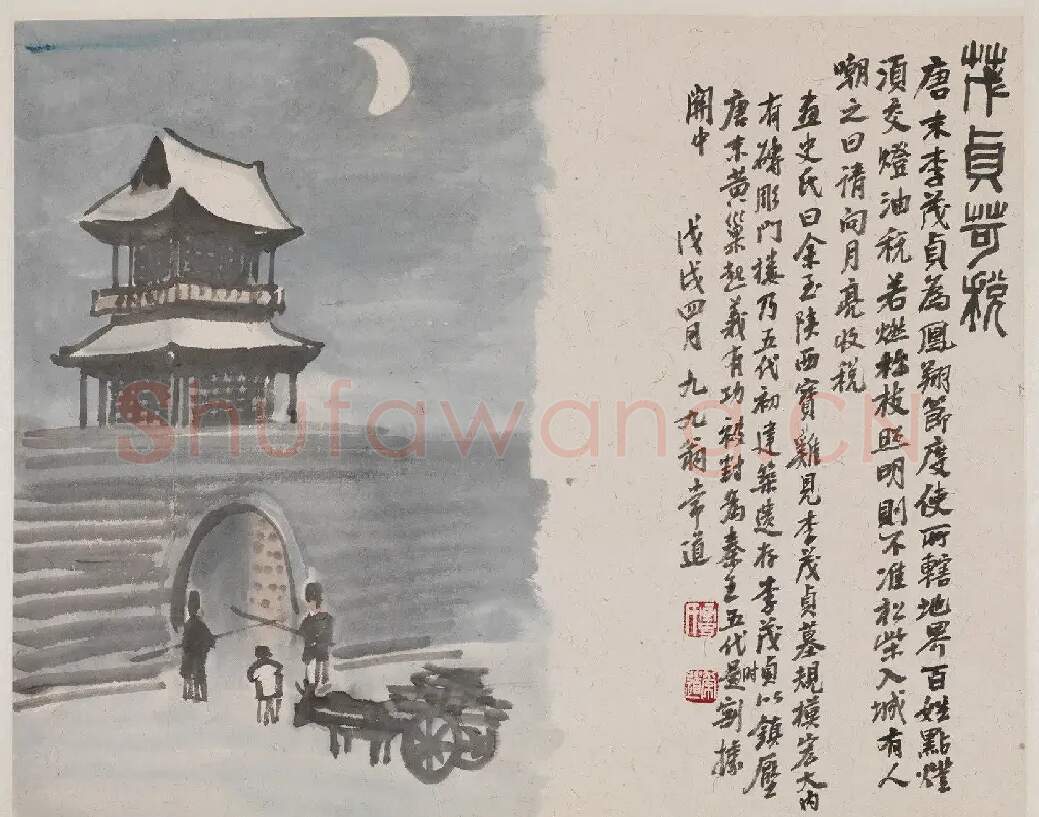 茂貞苛稅
唐末李茂貞為鳳翔節度使所轄地界百姓點燈
須交燈油稅若燃松枝照明則不准松柴入城有人
嘲之曰請向月亮收稅
畫史氏曰余至陝西寶雞見李茂貞墓規模宏大內
有磚彫門樓乃五代初建築遺存李茂貞以鎮壓
唐末黃巢起義有功被封為秦王五代時割據
關中
戊戌四月九九翁常道
Shufawang.CN